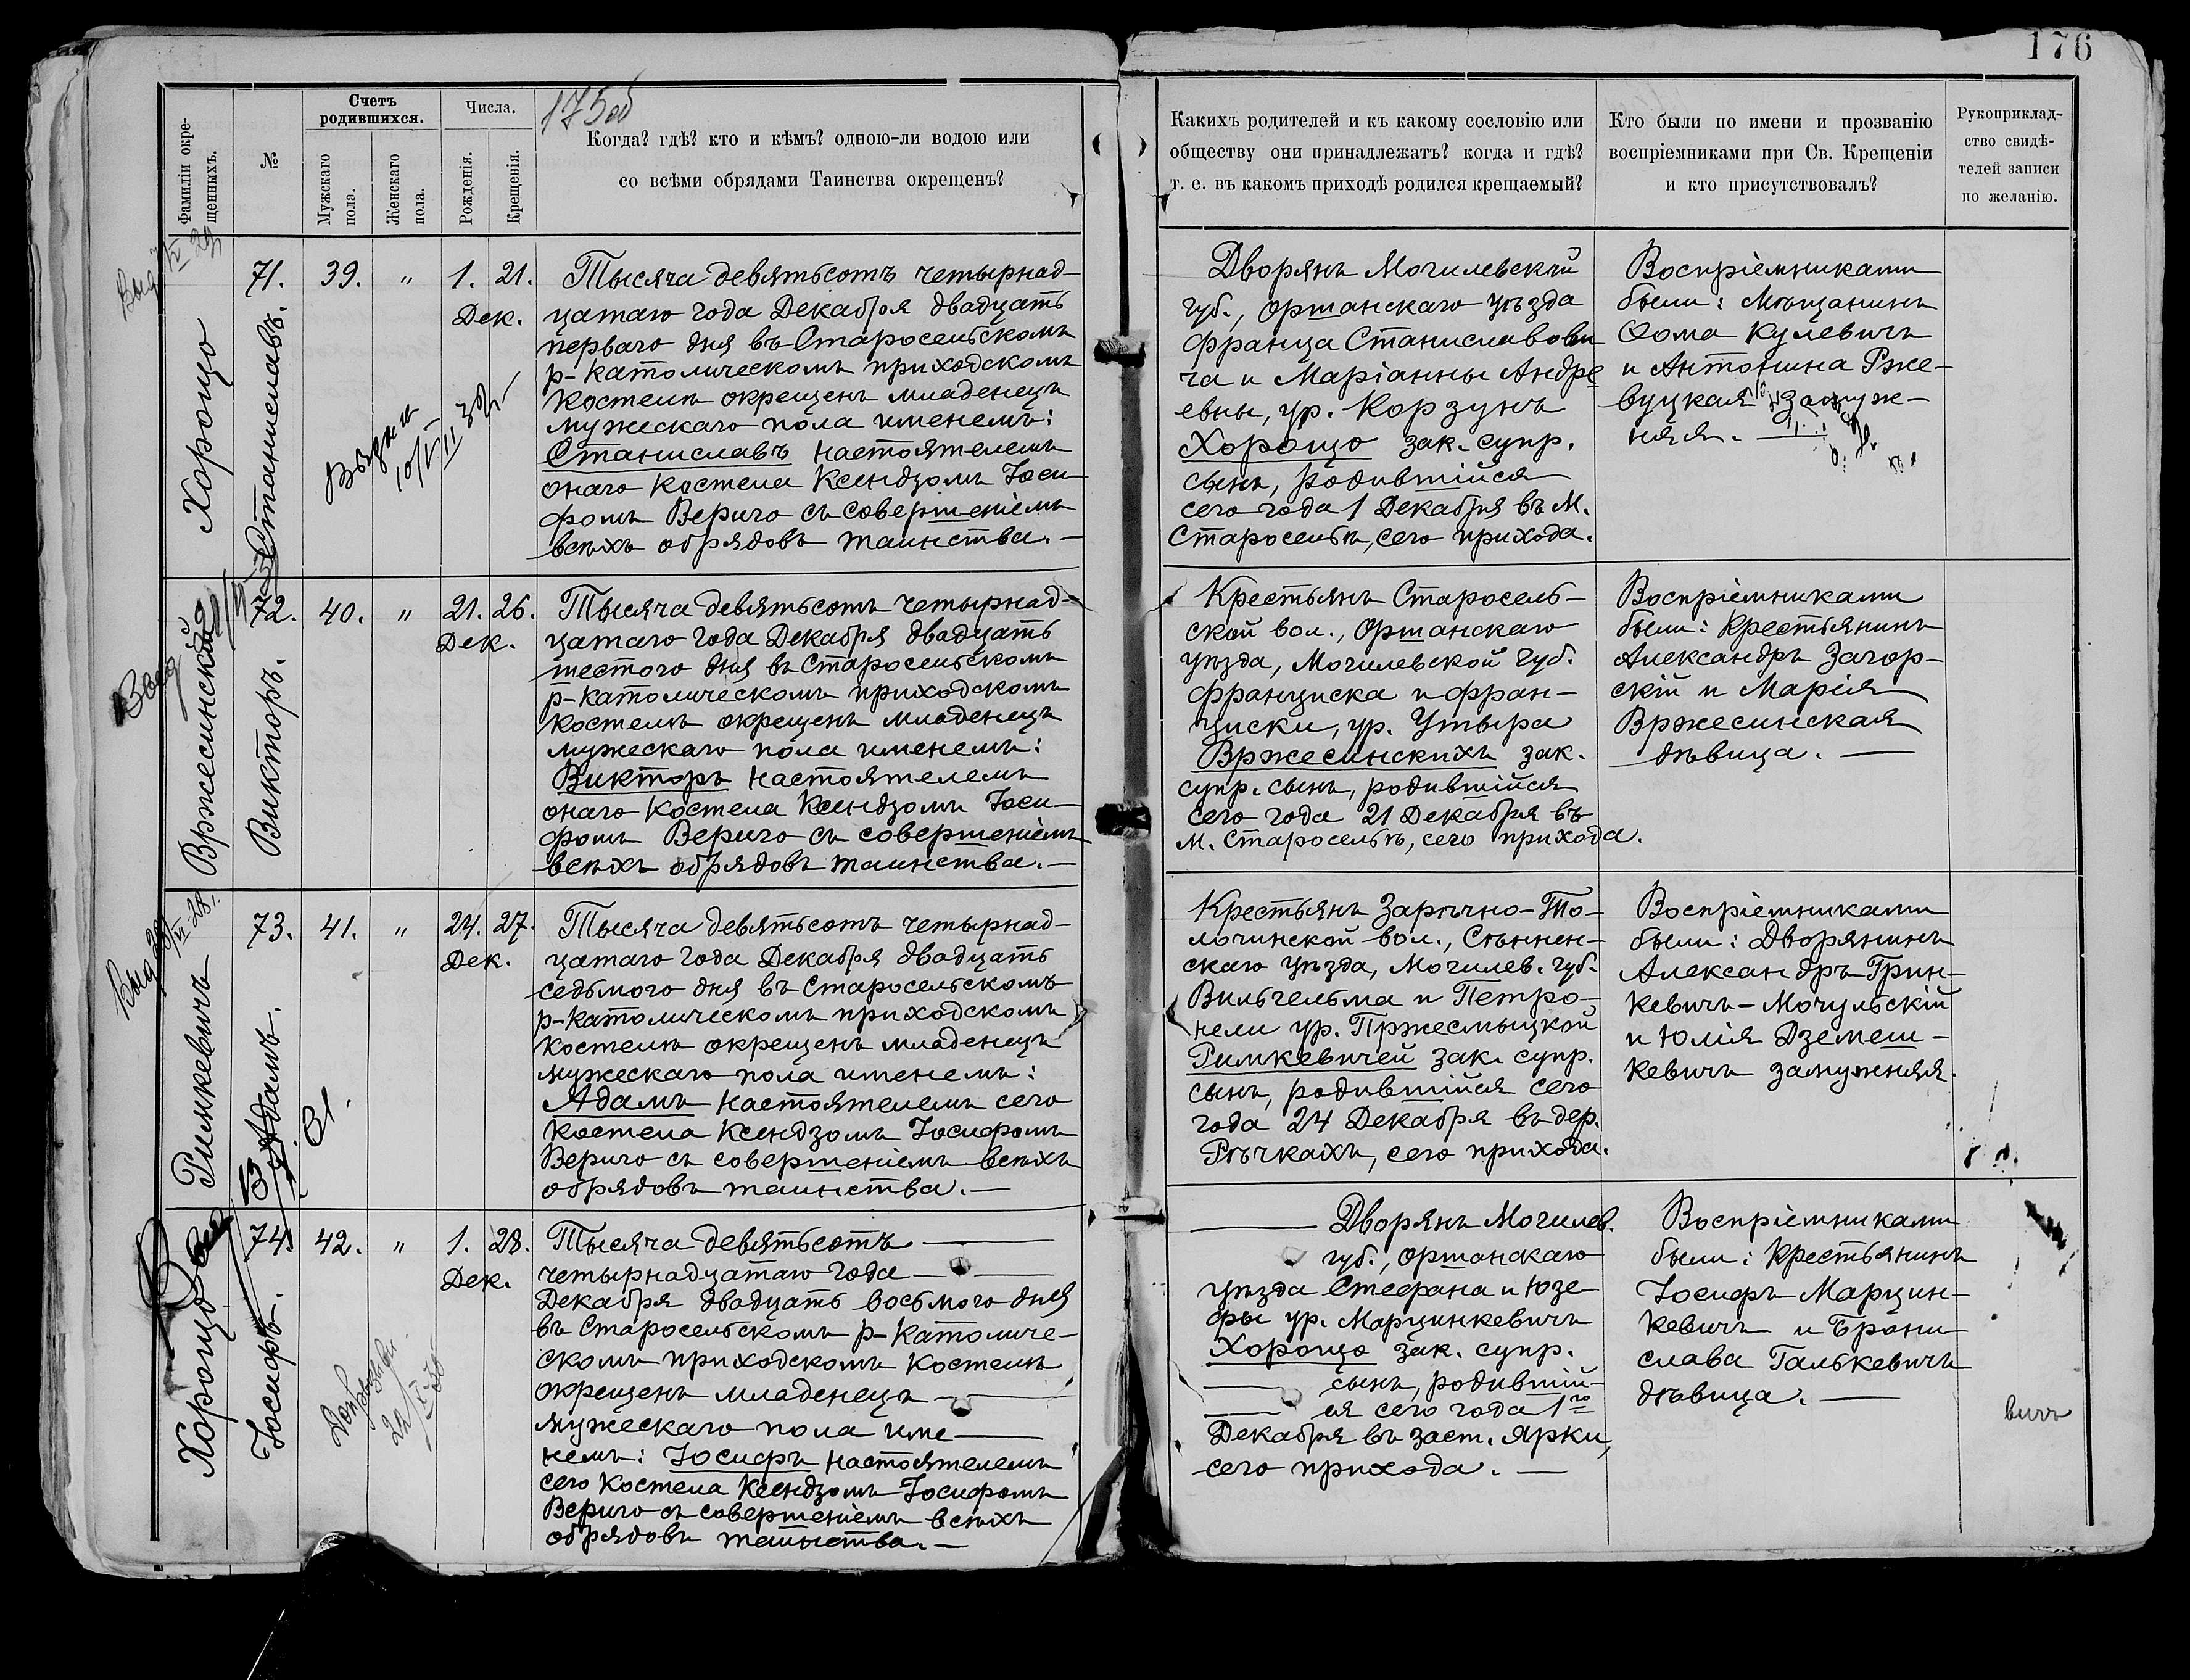 176
175 об
Фамиліи окре-
щенныхъ.
№
Счетъ
родившихся.
Мужскаго
пола.
Женскаго
пола.
Числа.
Рожденія.
Крещенія.
Когда? гдѣ? кто и кѣмъ? одною-ли водою или
со всѣми обрядами Таинства окрещенъ?
Какихъ родителей и къ какому сословію или
обществу они принадлежатъ? когда и гдѣ?
т. е. въ какомъ приходѣ родился крещаемый?
Кто были по имени и прозванію
воспріемниками при Св. Крещеніи
и кто присутствовалъ?
Рукоприклад-
ство свидѣ-
телей записи
по желанію.
Хорощо
Станиславъ.
71. 39. " 1. 21.
Дек.
Тысяча девятьсотъ четырнад-
цатаго года Декабря двадцать
перваго дня въ Старосельскомъ
р-католическомъ приходскомъ
костелѣ окрещенъ младенецъ
мужескаго пола именемъ:
Станиславъ настоятелемъ
онаго костела Ксендзомъ Іоси-
фомъ Вериго съ совершеніемъ
всѣхъ обрядовъ таинства.—
Дворянъ Могилевской
губ., Оршанскаго уѣзда
Франца Станиславови
ча и Маріанны Андре
евны, ур. Корзунъ
Хорощо зак. супр.
сынъ, родившійся
сего года 1 Декабря въ М.
Старосельѣ, сего прихода.
Воспріемниками
были: Мѣщанинъ
Ѳома Кулевичъ
и Антонина Рже-
вуцкая замуж-
няя.—
Вржесинскій
Викторъ.
72. 40. " 21. 26.
Дек.
Тысяча девятьсотъ четырнад-
цатаго года Декабря двадцать
шестого дня въ Старосельскомъ
р-католическомъ приходскомъ
костелѣ окрещенъ младенецъ
мужескаго пола именемъ:
Викторъ настоятелемъ
онаго костела Ксендзомъ Іоси-
фомъ Вериго съ совершеніемъ
всѣхъ обрядовъ таинства.—
Крестьянъ Старосель-
ской вол., Оршанскаго
уѣзда, Могилевской губ.
Франциска и Фран-
циски, ур. Утыра
Вржесинскихъ зак.
супр. сынъ, родившійся
сего года 21 Декабря въ
м. Старосельѣ, сего прихода.
Воспріемниками
были: Крестьянинъ
Александръ Загор-
скій и Марія
Вржесинская
дѣвица.—
Римкевичъ
Адамъ.
73. 41. " 24. 27.
Дек.
Тысяча девятьсотъ четырнад-
цатаго года Декабря двадцать
седьмого дня въ Старосельскомъ
р-католическомъ приходскомъ
костелѣ окрещенъ младенецъ
мужескаго пола именемъ:
Адамъ настоятелемъ сего
костела Ксендзомъ Іосифомъ
Вериго съ совершеніемъ всѣхъ
обрядовъ таинства.—
Крестьянъ Зарѣчно-То-
лочинской вол., Сѣннен-
скаго уѣзда, Могилев. губ.
Вильгельма и Петро-
нели ур. Пржесмыцкой
Римкевичей зак. супр.
сынъ, родившійся сего
года 24 Декабря въ дер.
Рѣчкахъ, сего прихода.
Воспріемниками
были: Дворянинъ
Александръ Грин-
кевичъ-Мочульскій
и Юлія Дземеш-
кевичъ замужняя.
Хорощо
Іосифъ.
74. 42. " 1. 28.
Дек.
Тысяча девятьсотъ —
четырнадцатаго года —
Декабря двадцать восьмого дня
въ Старосельскомъ р-католиче-
скомъ приходскомъ костелѣ
окрещенъ младенецъ —
мужескаго пола име —
немъ: Іосифъ настоятелемъ
сего костела Ксендзомъ Іосифомъ
Вериго съ совершеніемъ всѣхъ
обрядовъ таинства.—
— Дворянъ Могилев.
губ., Оршанскаго
уѣзда Стефана и Юзе-
фы ур. Марцинкевичъ
Хорощо зак. супр.
— сынъ, родившій-
— ся сего года 1го
Декабря въ заст. Ярки,
сего прихода.—
Воспріемниками
были: Крестьянинъ
Іосифъ Марцин-
кевичъ и Брони
слава Галькевичъ
дѣвица.—
вичъ